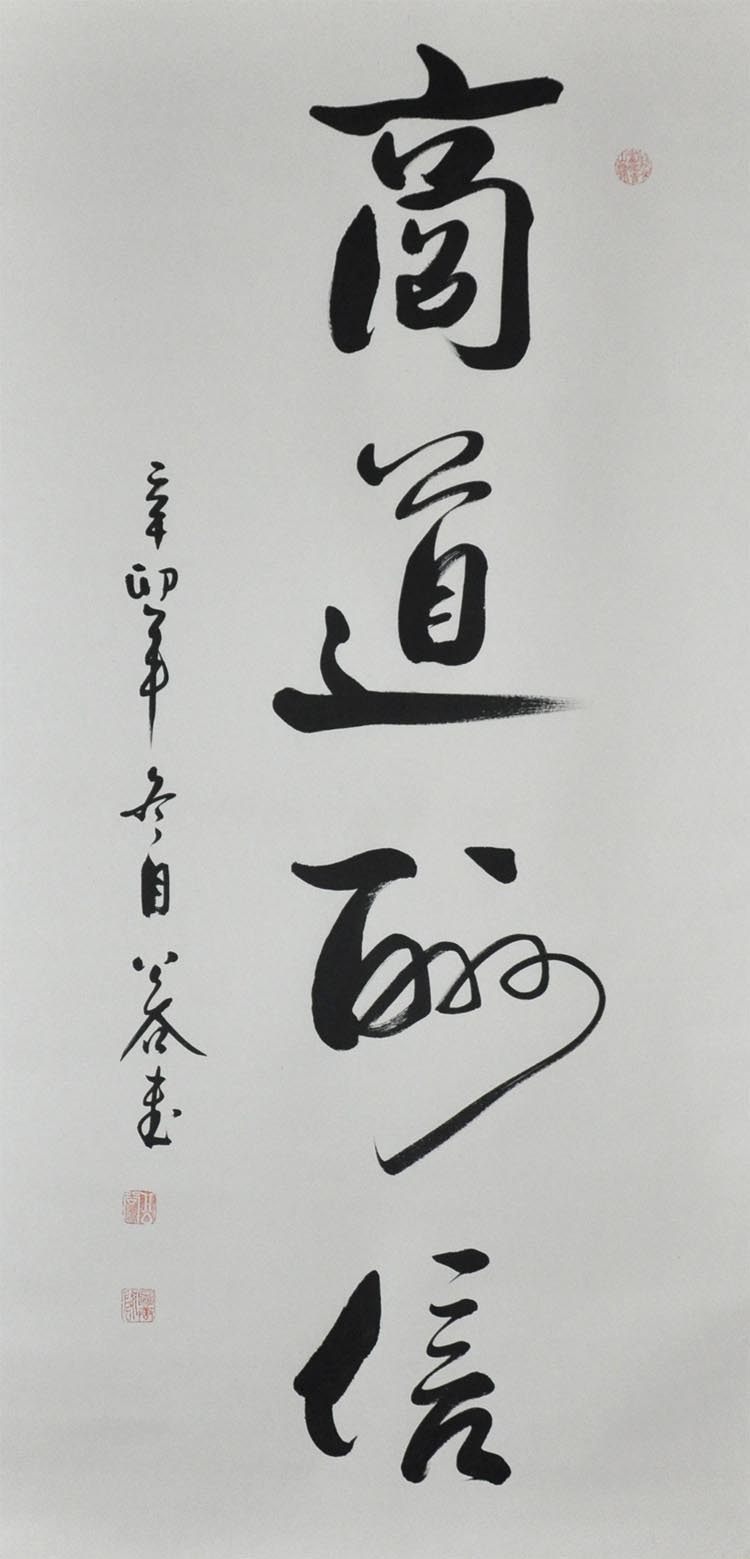 商道酬信
辛卯年冬月